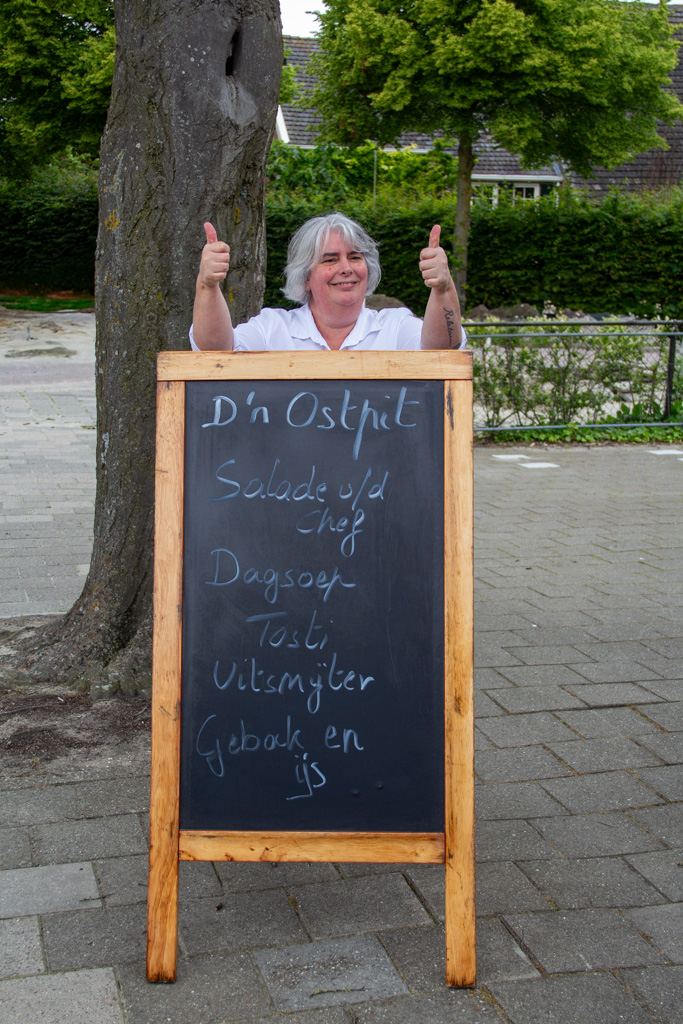 D'n Ostpit
Salade v/d
Chef
Dagsoep
Tosti
Uitsmijter
Gebak en
ijs